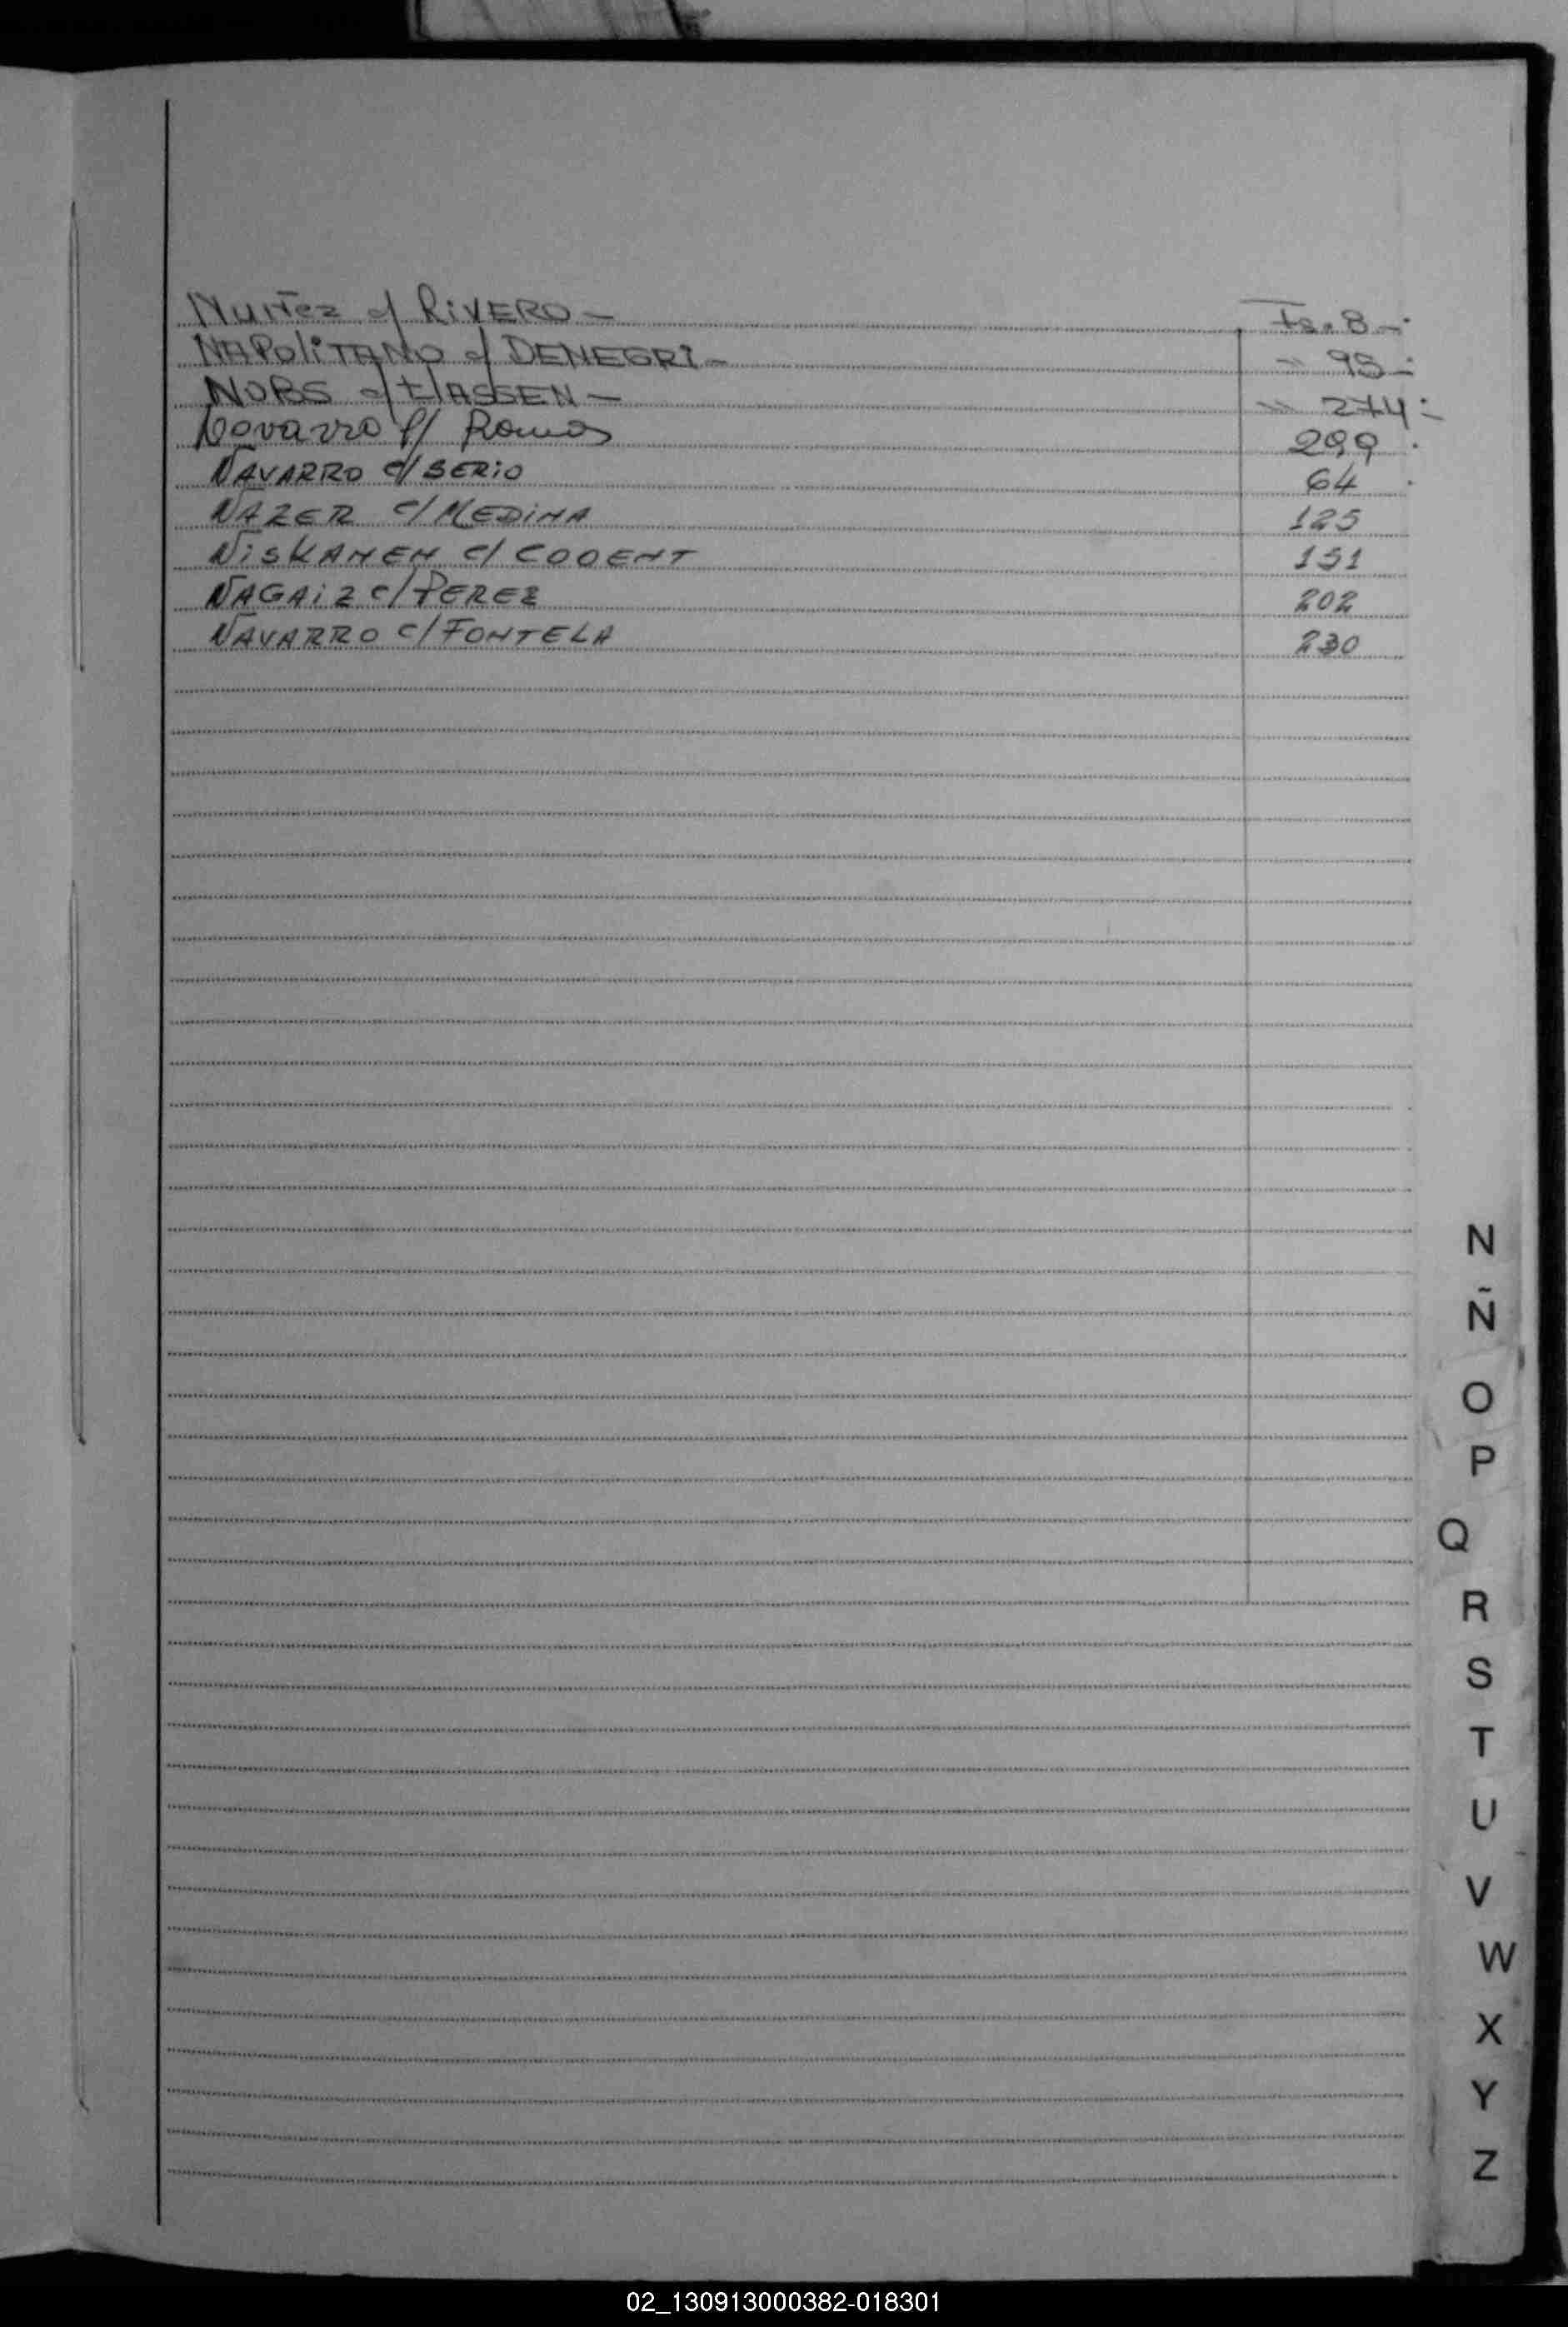 Nuñez c/ RIVERO - Fs. 8 -
NAPOLITANO c/ DENEGRI - " 95 -
NORS c/ CLASSEN - " 274 -
Navarro c/ Ramos 299
NAVARRO c/ SERIO 64
NAZER c/ MEDINA 125
NISKANEN c/ COOENT 151
NAGAIZ c/ PEREZ 202
NAVARRO c/ FONTELA 230
N
Ñ
O
P
Q
R
S
T
U
V
W
X
Y
Z
02_130913000382-018301